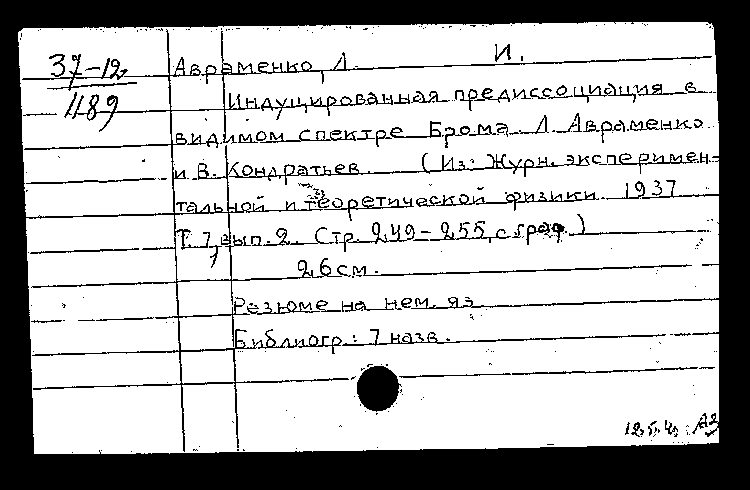 37-12
489
Авраменко, Л. И.
Индуцированная предиссоциация в
видимом спектре Брома. Л. Авраменко
и В. Кондратьев. (Из: Журн. эксперимен-
тальной и теоретической физики. 1937
Т. 7, вып. 2. Стр. 249-255, с граф.)
26 см.
Резюме на нем. яз.
Библиогр.: 7 назв.